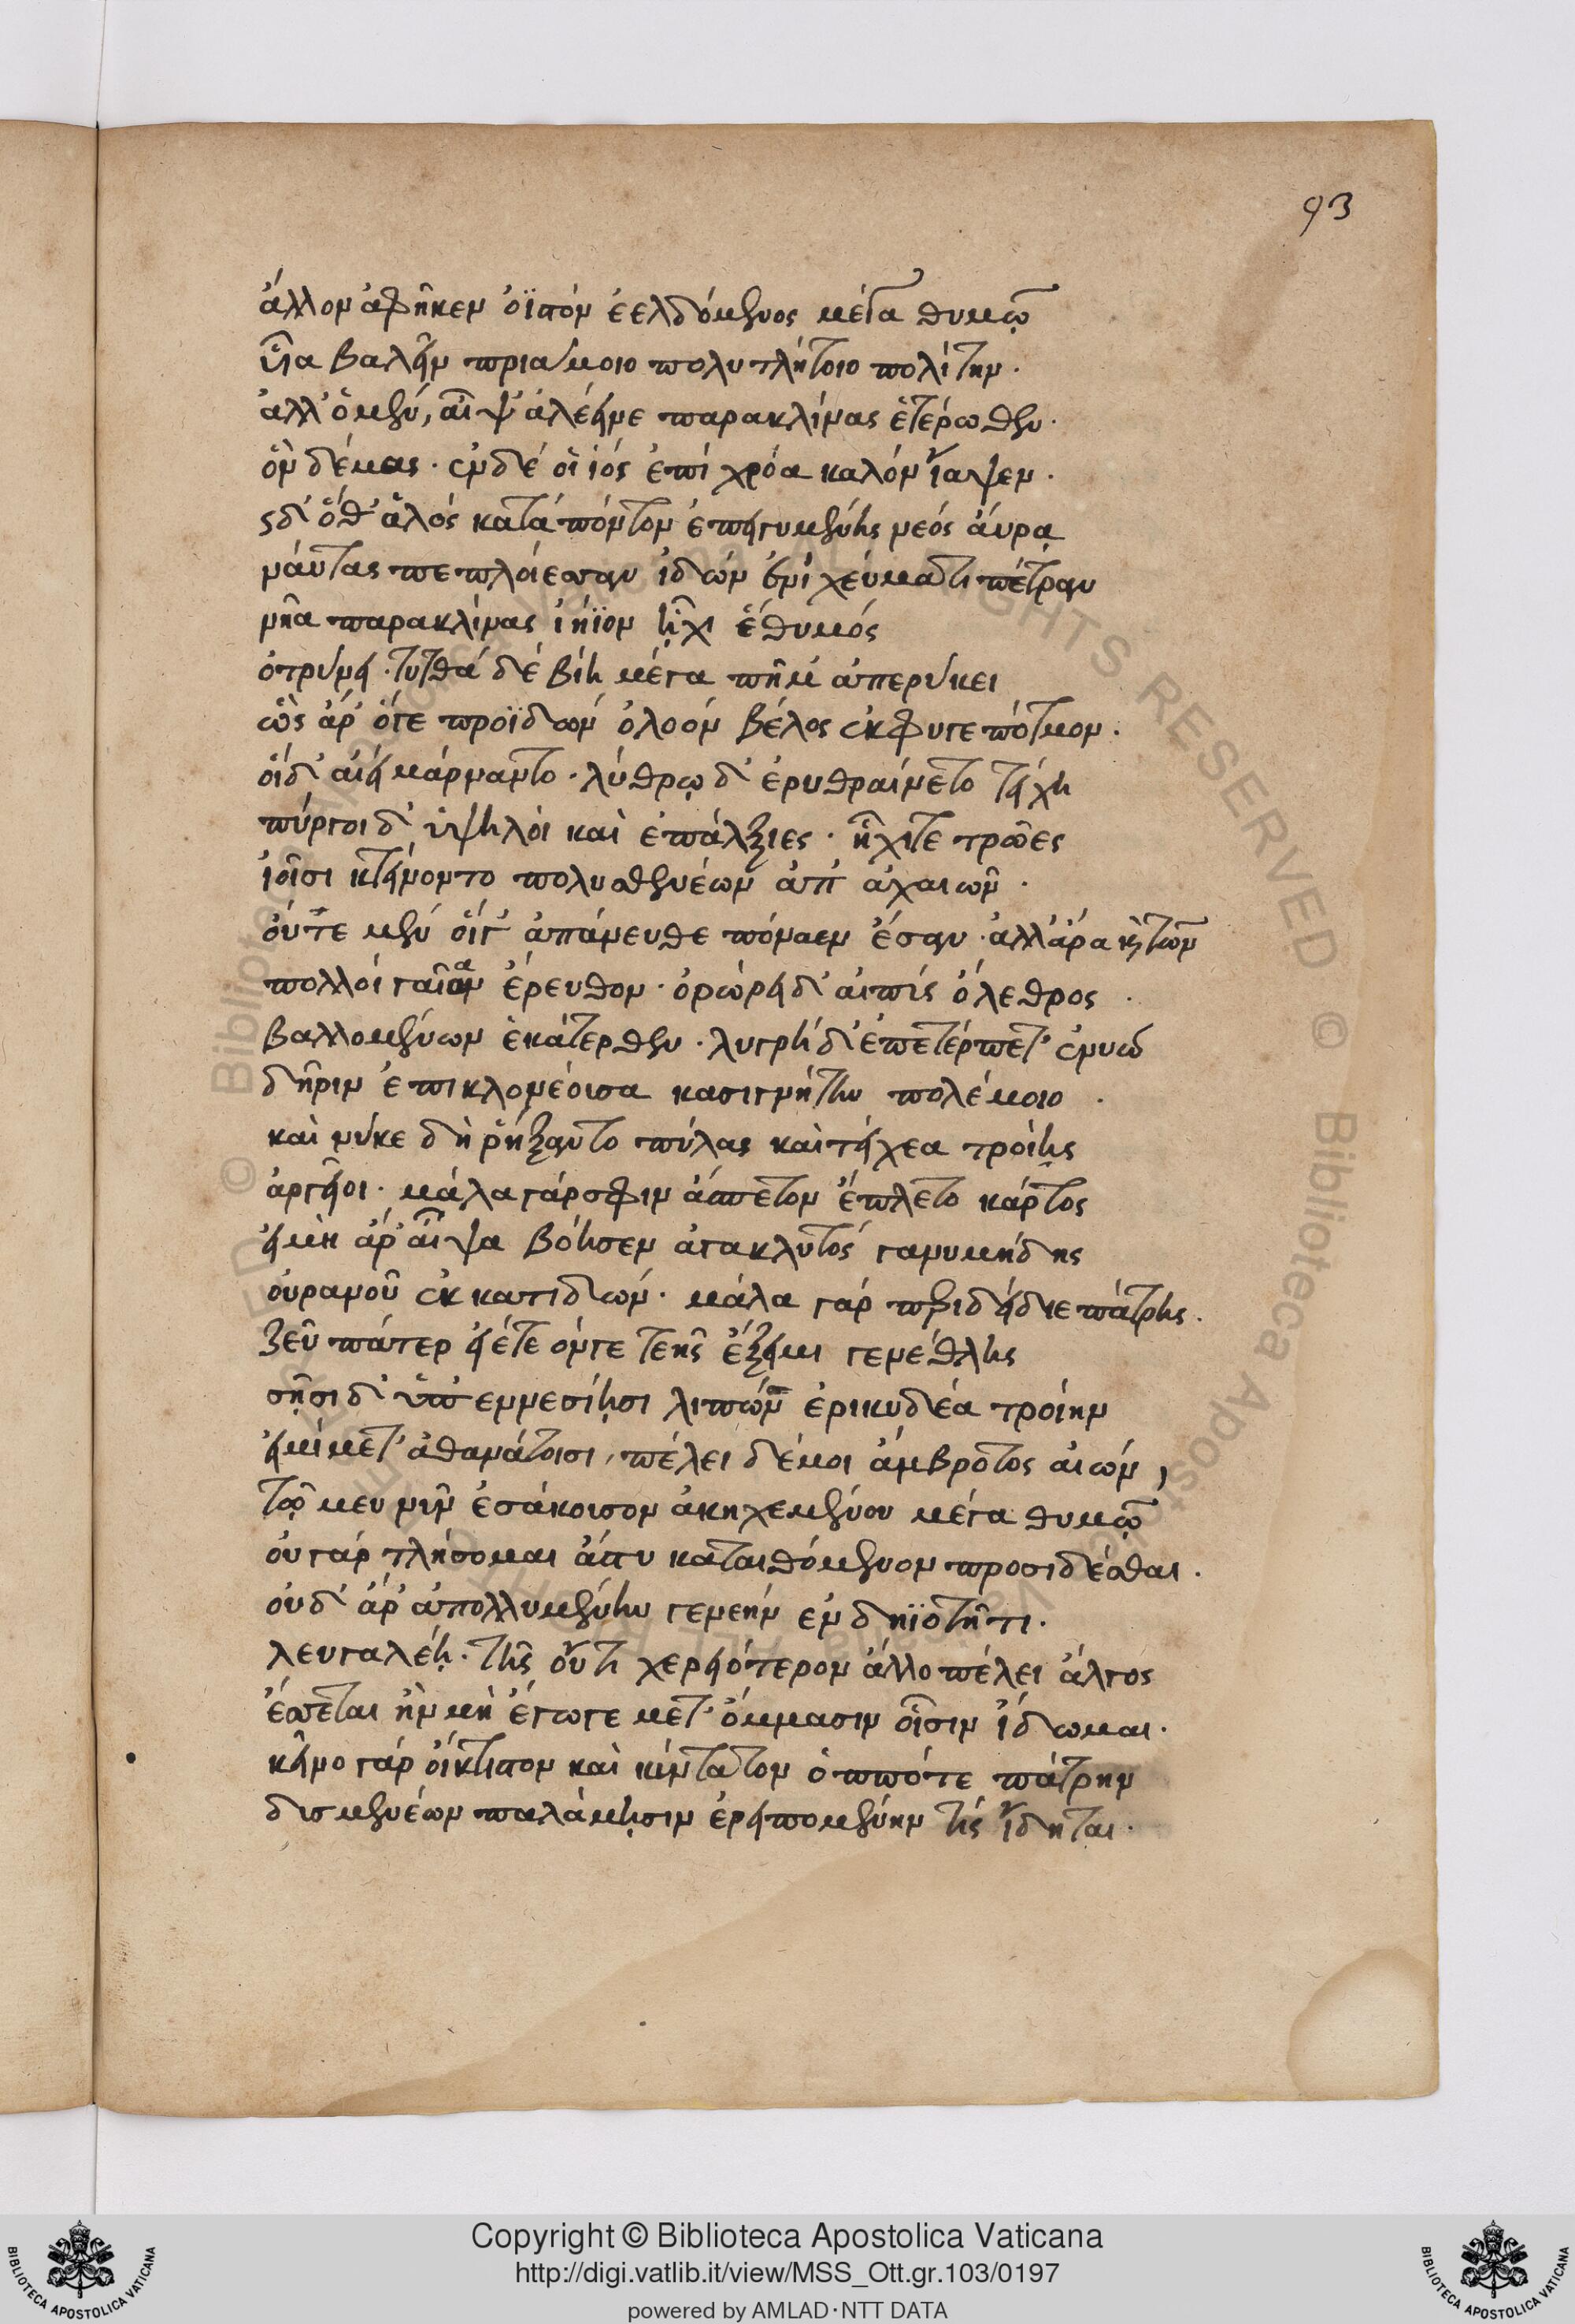 93
ἄλλον ἀφῆκεν ὀϊστὸν ἐελδόμενος μέγα θυμῷ
υἷα βαλεῖν πριάμοιο πολυτλήτοιο πολίτην.
ἀλλ' ὁ μὲν, αἶψ' ἀλέεινε παρακλίνας ἑτέρωθεν.
ὃν δέμας. οὐδέ οἱ ἰὸς ἐπὶ χρόα καλὸν ἴαψεν.
ὡς δ' ὅθ' ἁλὸς κατὰ πόντον ἐπειγομένης νεὸς αὔρᾳ
ναύτας πεπλοίεσσαν ἰδὼν ἐνὶ χεύματι πέτρην
νῆα παρακλίνας ἰήϊον ᾗχι ἑ θυμὸς
ὀτρύνει. τυτθὰ δὲ βίη μέγα πῆμ' ἀπερύκει
ὣς ἄρ' ὅγε προϊδὼν ὀλοὸν βέλος ἔκφυγε πότμον.
οἱ δ' αἰεὶ μάρναντο. λύθρῳ δ' ἐρυθραίνετο τείχη
πύργοι δ' ὑψηλοὶ καὶ ἐπάλξιες. ᾗχί τε τρῶες
ἰοῖσι κτείνοντο πολυσθενέων ὑπ' ἀχαιῶν.
οὔτε μὲν οἵγ' ἀπάνευθε πόνων ἔσαν. ἀλλ' ἄρα καὶ τῶν
πολλοὶ γαῖαν ἔρευθον. ὀρώρει δ' αἰπὺς ὄλεθρος.
βαλλομένων ἑκάτερθεν. λυγρὴ δ' ἐπετέρπετ' ἐνυὼ
δῆριν ἐπικλονέουσα κασιγνήτη πολέμοιο.
καὶ νύκε δὴ ῥήξαντο πύλας καὶ τείχεα τροίης
ἀργεῖοι. μάλα γάρ σφιν ἄσπετον ἔπλετο κάρτος
εἰ μὴ ἄρ' αἶψα βόησεν ἀγακλυτὸς γανυμήδης
οὐρανοῦ ἐκ κατιδών. μάλα γὰρ περιδείδιε πάτρης.
ζεῦ πάτερ εἰ ἐτεόν γε τεῆς ἔξειμι γενέθλης
σῇσι δ' ὑπ' ἐννεσίῃσι λιπὼν ἐρικυδέα τροίην
εἰμὶ μετ' ἀθανάτοισι, πέλει δέ μοι ἄμβροτος αἰών,
τῷ μευ νῦν ἐσάκουσον ἀκηχεμένου μέγα θυμῷ
οὐ γὰρ τλήσομαι ἄστυ καταιθόμενον προσιδέσθαι.
οὐδ' ἄρ' ἀπολλυμένην γενεὴν ἐν δηϊοτῆτι.
λευγαλέῃ. τῆς οὔτι χερειότερον ἄλλο πέλει ἄλγος
ἔσσεται ἢν μὴ ἔγωγε μετ' ὄμμασιν οἷσιν ἴδωμαι.
κεῖνο γὰρ οἴκτιστον καὶ κύντατον ὁππότε πάτρην
δυσμενέων παλάμῃσιν ἐρειπομένην τις ἴδηται.
© Biblioteca Apostolica Vaticana ALL RIGHTS RESERVED
Copyright © Biblioteca Apostolica Vaticana
http://digi.vatlib.it/view/MSS_Ott.gr.103/0197
powered by AMLAD·NTT DATA
BIBLIOTECA APOSTOLICA VATICANA
BIBLIOTECA APOSTOLICA VATICANA